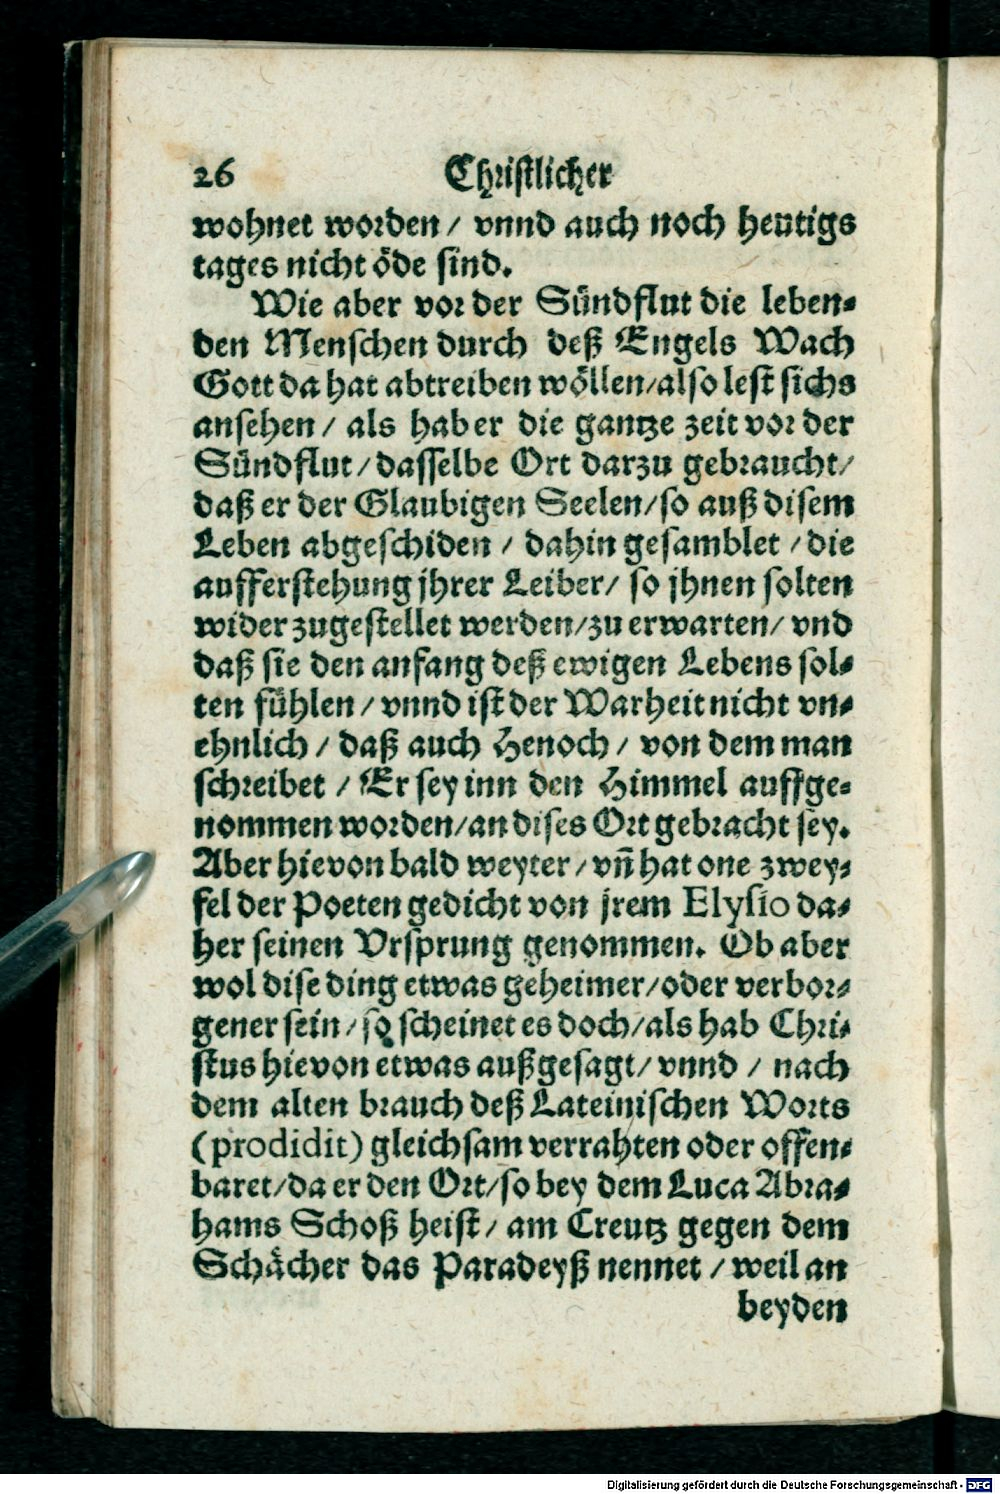 26 Christlicher
wohnet worden / vnnd auch noch heutigs
tages nicht öde sind.
Wie aber vor der Sündflut die leben-
den Menschen durch deß Engels Wach
Gott da hat abtreiben wöllen / also lest sichs
ansehen / als hab er die gantze zeit vor der
Sündflut / dasselbe Ort darzu gebraucht /
daß er der Glaubigen Seelen / so auß disem
Leben abgeschiden / dahin gesamblet / die
aufferstehung jhrer Leiber / so jhnen solten
wider zugestellet werden / zu erwarten / vnd
daß sie den anfang deß ewigen Lebens sol-
ten fühlen / vnnd ist der Warheit nicht vn-
ehnlich / daß auch Henoch / von dem man
schreibet / Er sey inn den Himmel auffge-
nommen worden / an dises Ort gebracht sey.
Aber hievon bald weyter / vñ hat one zwey-
fel der Poeten gedicht von jrem Elysio da-
her seinen Vrsprung genommen. Ob aber
wol dise ding etwas geheimer / oder verbor-
gener sein / so scheinet es doch / als hab Chri-
stus hievon etwas außgesagt / vnnd / nach
dem alten brauch deß Lateinischen Worts
(prodidit) gleichsam verrahten oder offen-
baret / da er den Ort / so bey dem Luca Abra-
hams Schoß heist / am Creutz gegen dem
Schächer das Paradeyß nennet / weil an
beyden
Digitalisierung gefördert durch die Deutsche Forschungsgemeinschaft - DFG